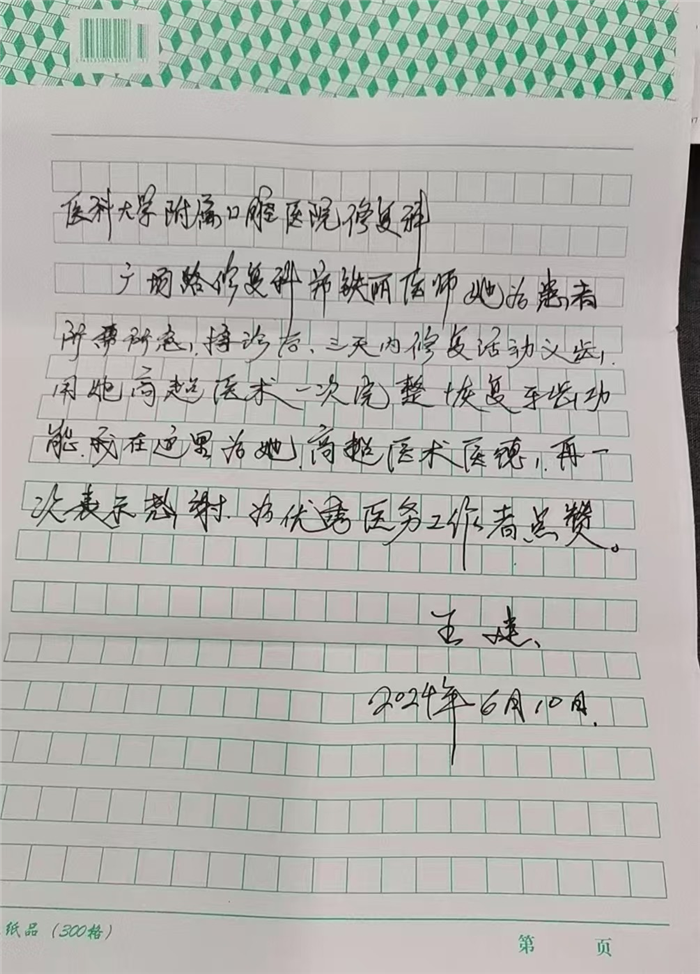 医科大学附属口腔医院修复科
广场路修复科郑铁丽医师她为患者
所需所急,接诊后、三天内修复活动义齿,
用她高超医术一次完整恢复牙齿功
能.我在这里为她.高超医术医德,再一
次表示感谢.为优秀医务工作者点赞。
王建
2024年6月10日.
纸品(300格)
第 页